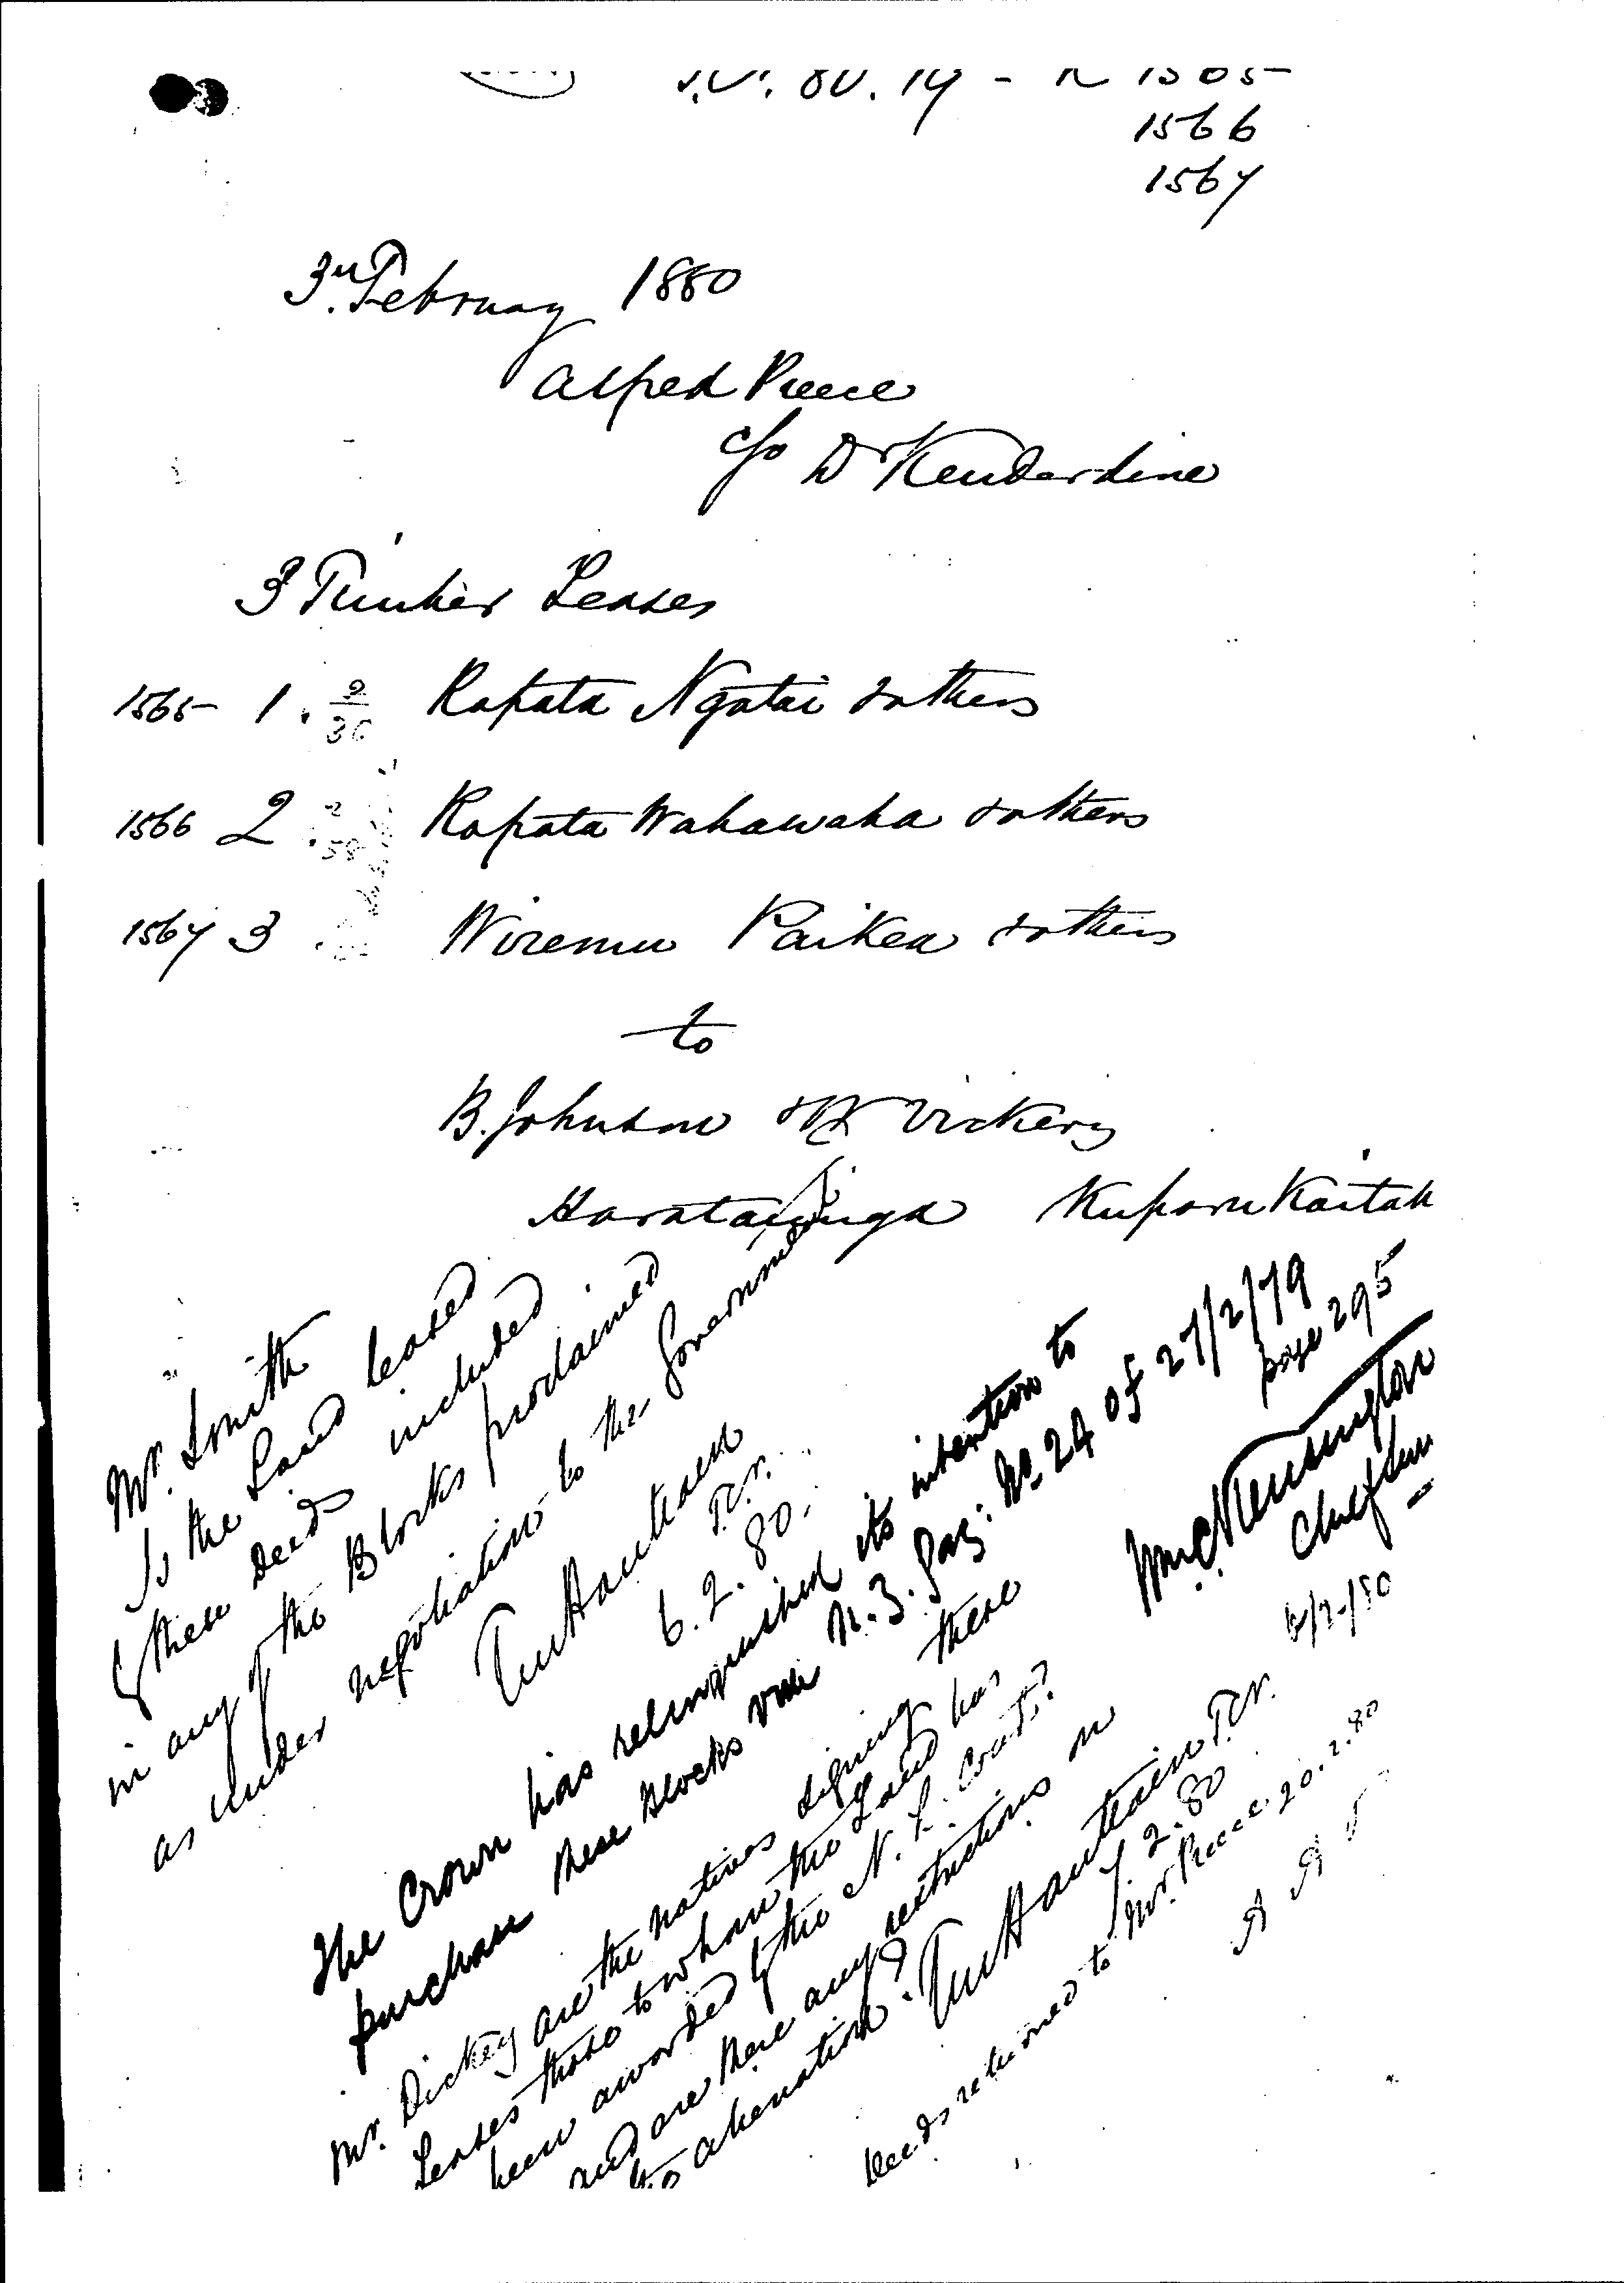 1565
1566
1567
3rd February 1880
Alfred Preece
c/o D Kenderdine
3 Timber Leases
1565 1. Ropata Ngatai & others
1566 2. Ropata Wahawaha & others
1567 3 Wiremu Paikea & others
to
B. Johnson & Vickery
Harataunga Kuparu Kaitah
Mr. Smith
Is the Land leased
by these Deeds included
in any of the Blocks proclaimed
as under negotiation to the Government
6.2.80.
The Crown has relinquished its intention to
purchase these Blocks vide N.Z. Gaz: No. 24 of 27/2/79
page 295
Chief
Mr. Dickey are the natives signing these
Leases those to whom the Land has
been awarded by the N.L. Court?
and are there any restrictions on
its alienation?
7.2.80
Deeds returned to Mr. Preece 20.2.80